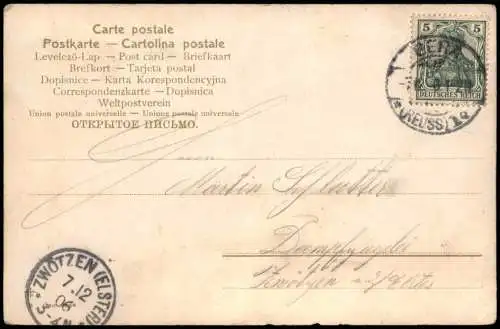 Carte postale
Postkarte — Cartolina postale
Levelező-Lap — Post card — Briefkaart
Brefkort — Tarjeta postal
Dopisnice — Karta Korespondencyjna
Correspondenzkarte — Dopisnica
Weltpostverein
Union postale universelle — Unione postale universale
ОТКРЫТОЕ ПИСЬМО.
5 5
DEUTSCHES REICH
GERA
(REUSS)
Martin Schlutter
Dampfziegelei
Zwötzen
ZWÖTZEN (ELSTER)
7.12
06
3-4N